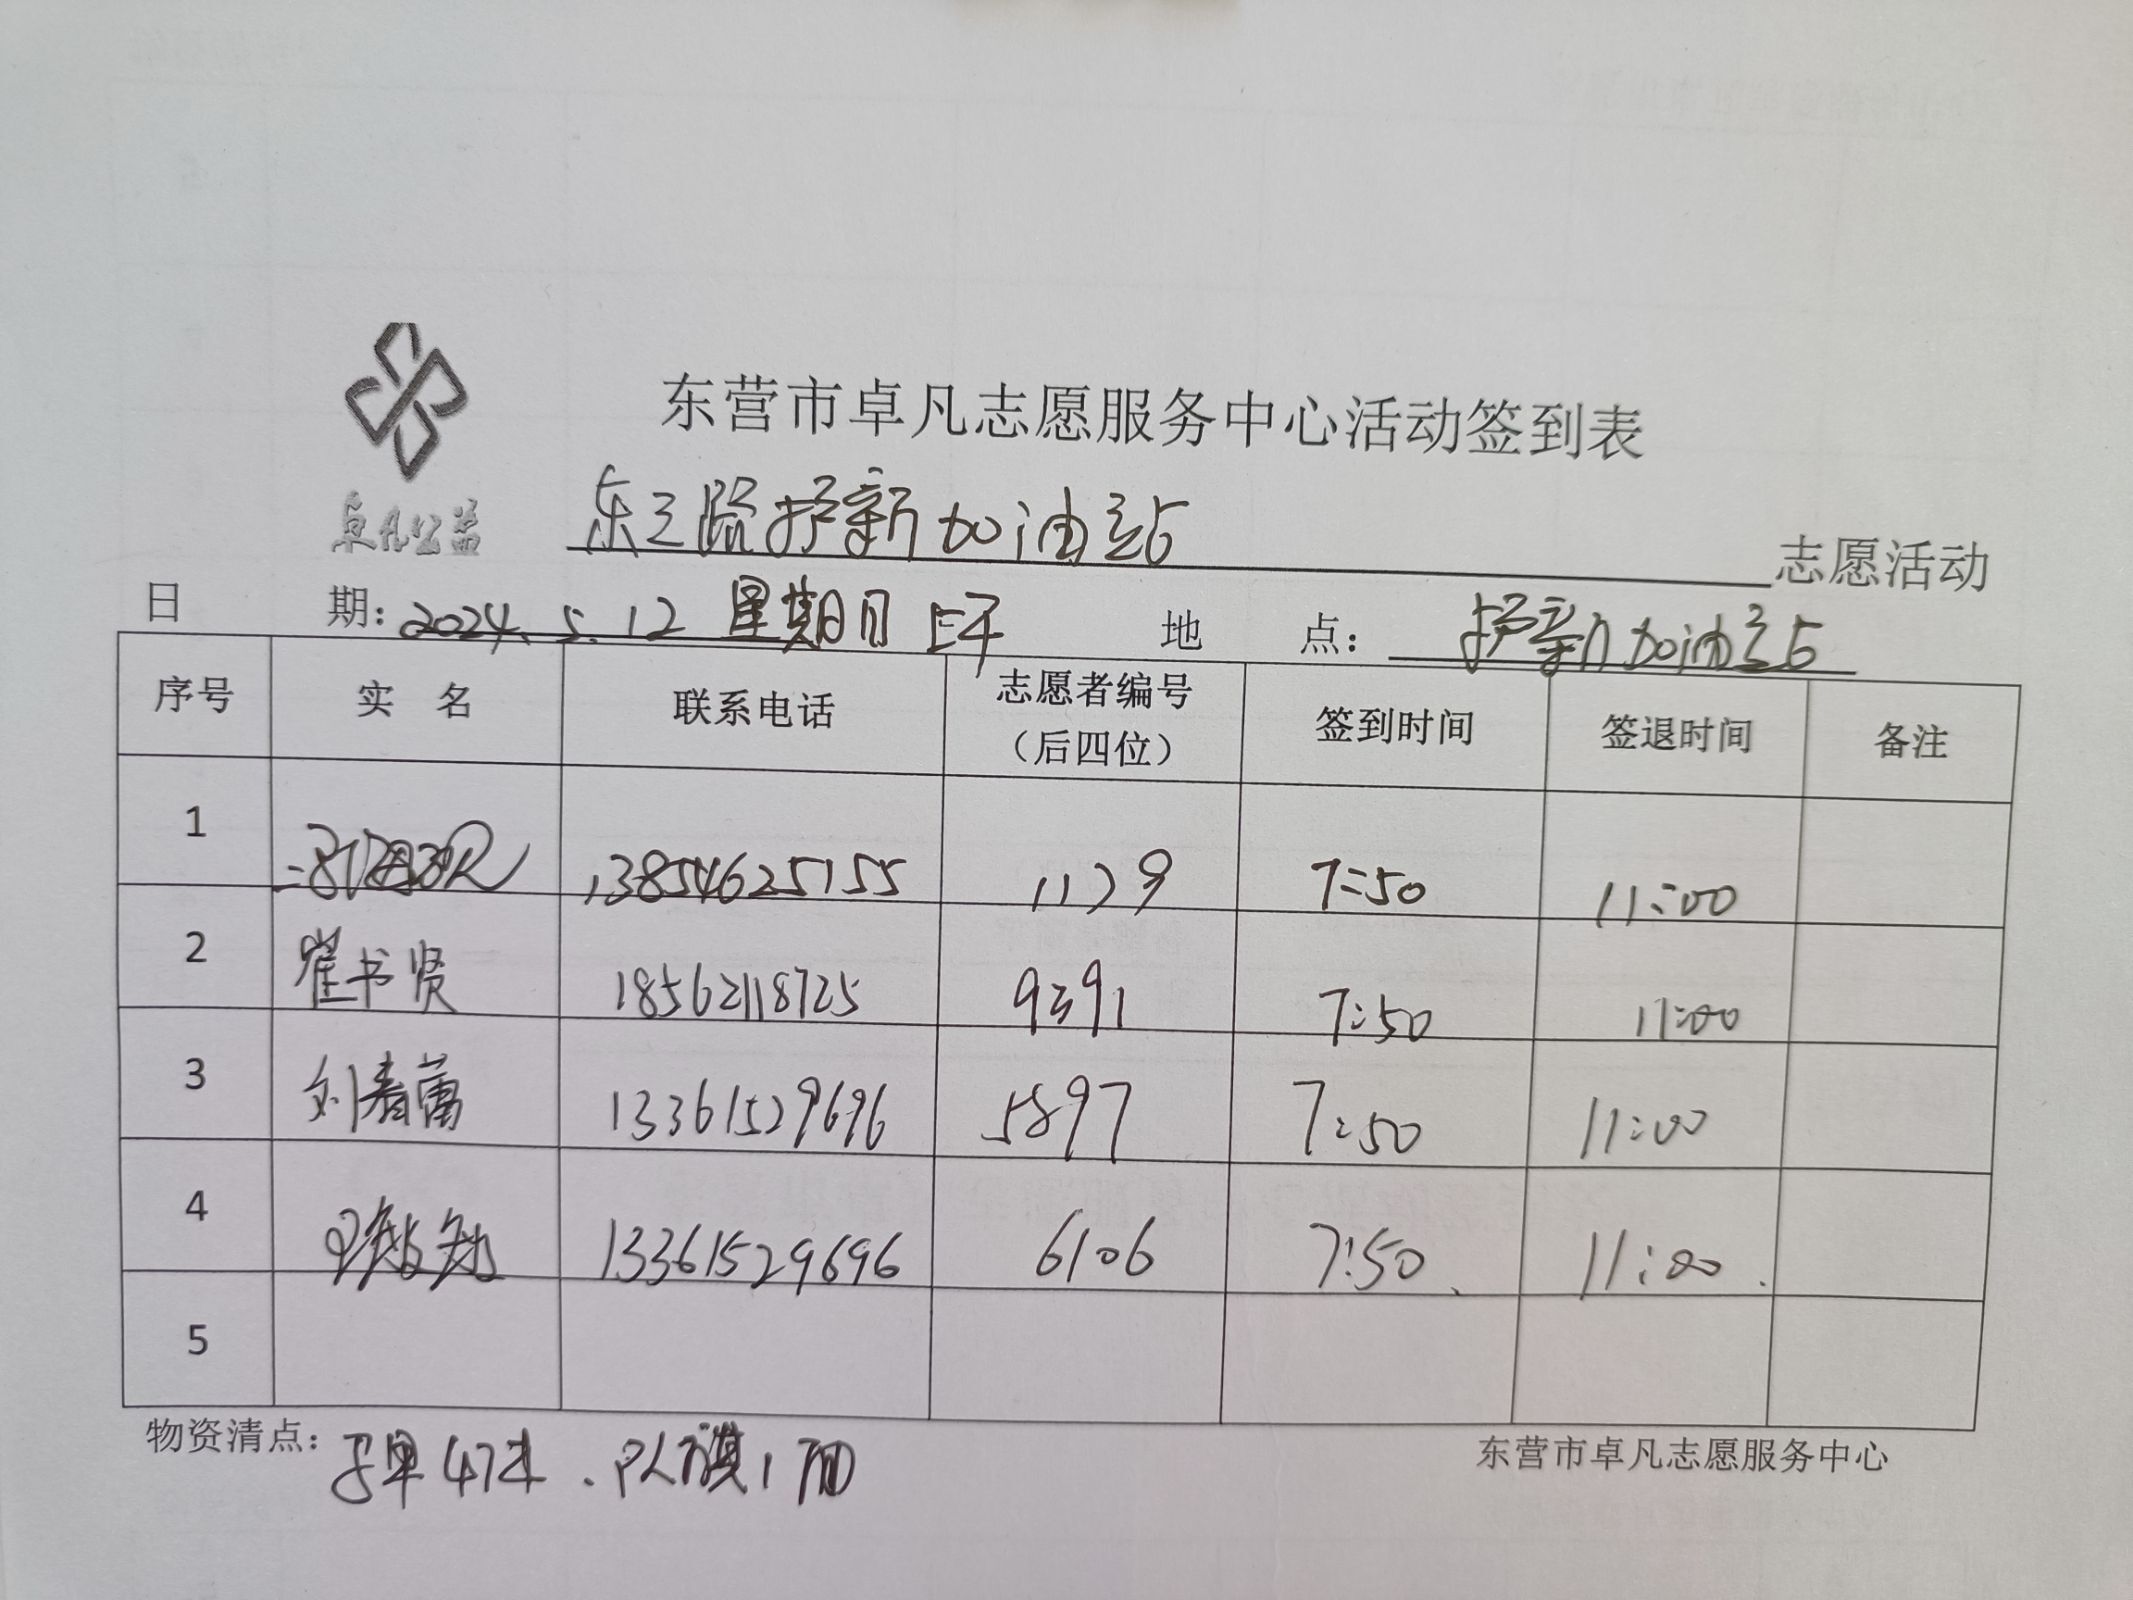 东营市卓凡志愿服务中心活动签到表
卓凡公益
东三路护新加油站 志愿活动
日 期: 2024.5.12 星期日 上午 地 点: 护新加油站
序号 实 名 联系电话 志愿者编号（后四位） 签到时间 签退时间 备注
1 13854625155 1129 7:50 11:00
2 崔书贤 18562118725 9391 7:50 11:00
3 刘春 13361529696 5897 7:50 11:00
4 13361529696 6106 7:50 11:00
5
物资清点: 马甲4件、队旗1面
东营市卓凡志愿服务中心